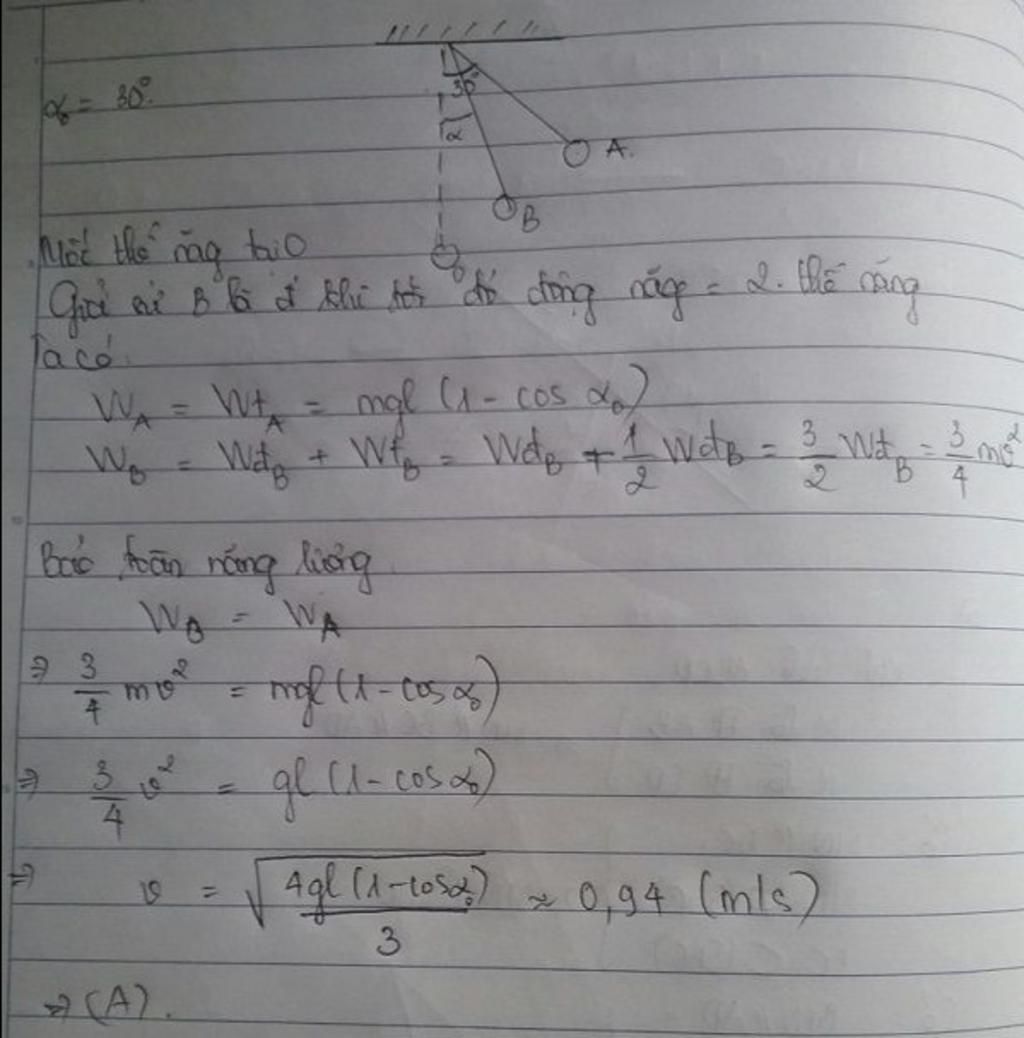 α₀ = 30°.
30°
α
A.
B
O
Mốc thế năng tại O
Giả sử B là vị trí khi tới đó động năng = 2. thế năng
Ta có
W_A = Wt_A = mgl (1 - cos α₀)
W_B = Wđ_B + Wt_B = Wđ_B + 1/2 Wđ_B = 3/2 Wđ_B = 3/4 mv²
Bảo toàn năng lượng
W_B = W_A
⇒ 3/4 mv² = mgl (1 - cos α₀)
⇒ 3/4 v² = gl (1 - cos α₀)
⇒ v = √(4gl (1 - cos α₀)/3) ≈ 0,94 (m/s)
⇒ (A).